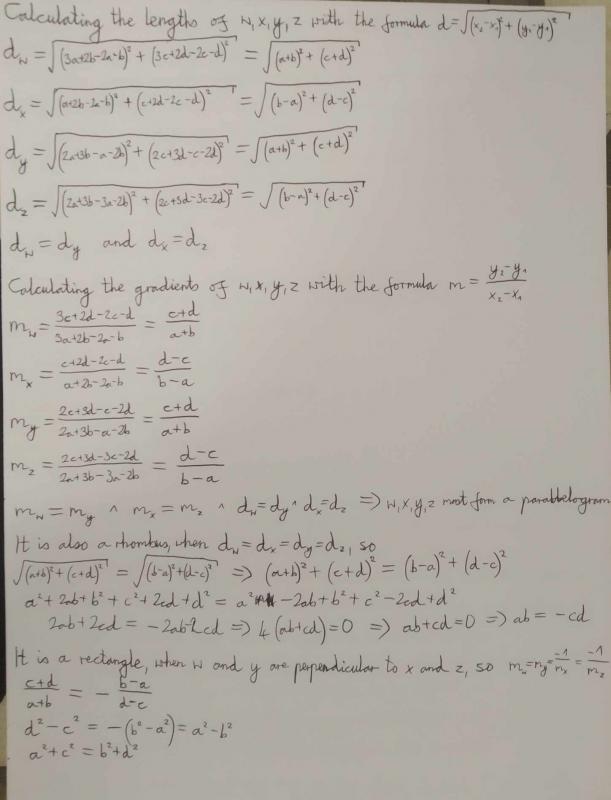 Calculating the lengths of w, x, y, z with the formula d=√((x₂-x₁)²+(y₂-y₁)²)
d_w = √((3a+2b-2a-b)² + (3c+2d-2c-d)²) = √((a+b)² + (c+d)²)
d_x = √((a+2b-2a-b)² + (c+2d-2c-d)²) = √((b-a)² + (d-c)²)
d_y = √((2a+3b-a-2b)² + (2c+3d-c-2d)²) = √((a+b)² + (c+d)²)
d_z = √((2a+3b-3a-2b)² + (2c+3d-3c-2d)²) = √((b-a)² + (d-c)²)
d_w = d_y and d_x = d_z
Calculating the gradients of w, x, y, z with the formula m = (y₂-y₁)/(x₂-x₁)
m_w = (3c+2d-2c-d)/(3a+2b-2a-b) = (c+d)/(a+b)
m_x = (c+2d-2c-d)/(a+2b-2a-b) = (d-c)/(b-a)
m_y = (2c+3d-c-2d)/(2a+3b-a-2b) = (c+d)/(a+b)
m_z = (2c+3d-3c-2d)/(2a+3b-3a-2b) = (d-c)/(b-a)
m_w = m_y ∧ m_x = m_z ∧ d_w = d_y ∧ d_x = d_z ⇒ w, x, y, z must form a parallelogram
It is also a rhombus, when d_w = d_x = d_y = d_z, so
√((a+b)² + (c+d)²) = √((b-a)² + (d-c)²) ⇒ (a+b)² + (c+d)² = (b-a)² + (d-c)²
a² + 2ab + b² + c² + 2cd + d² = a² - 2ab + b² + c² - 2cd + d²
2ab + 2cd = -2ab - 2cd ⇒ 4(ab+cd) = 0 ⇒ ab + cd = 0 ⇒ ab = -cd
It is a rectangle, when w and y are perpendicular to x and z, so m_w = m_y = -1/m_x = -1/m_z
(c+d)/(a+b) = -(b-a)/(d-c)
d² - c² = -(b² - a²) = a² - b²
a² + c² = b² + d²